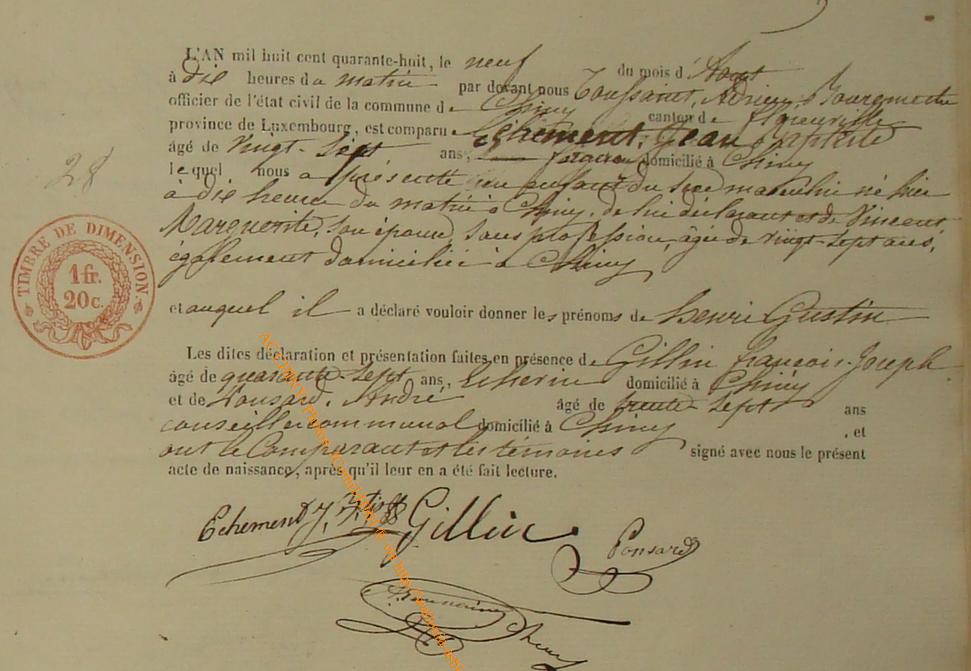 L'AN mil huit cent quarante-huit, le neuf du mois d'Aout
à dix heures du matin par devant nous Toussaint, Adrien, Bourgmestre
officier de l'état civil de la commune de Chiny canton de Florenville
province de Luxembourg, est comparu Echement, Jean Baptiste
âgé de vingt-sept ans, domicilié à Chiny
lequel nous a présenté un enfant du sexe masculin né hier
à dix heures du matin à Chiny, de lui déclarant et de Vincent
Marguerite, son épouse sans profession, âgée de vingt-sept ans,
également domiciliée à Chiny
28
TIMBRE DE DIMENSION.
1 fr.
20c.
et auquel il a déclaré vouloir donner les prénoms de henri Gustin
Les dites déclaration et présentation faites en présence de Gillin francois-Joseph
âgé de quarante-sept ans, domicilié à Chiny
et de Ponsard, André âgé de trente-sept ans
conseiller communal domicilié à Chiny , et
ont le Comparant et les témoins signé avec nous le présent
acte de naissance, après qu'il leur en a été fait lecture.
Echement J. Btiste Gillin Ponsard
A Toussaint